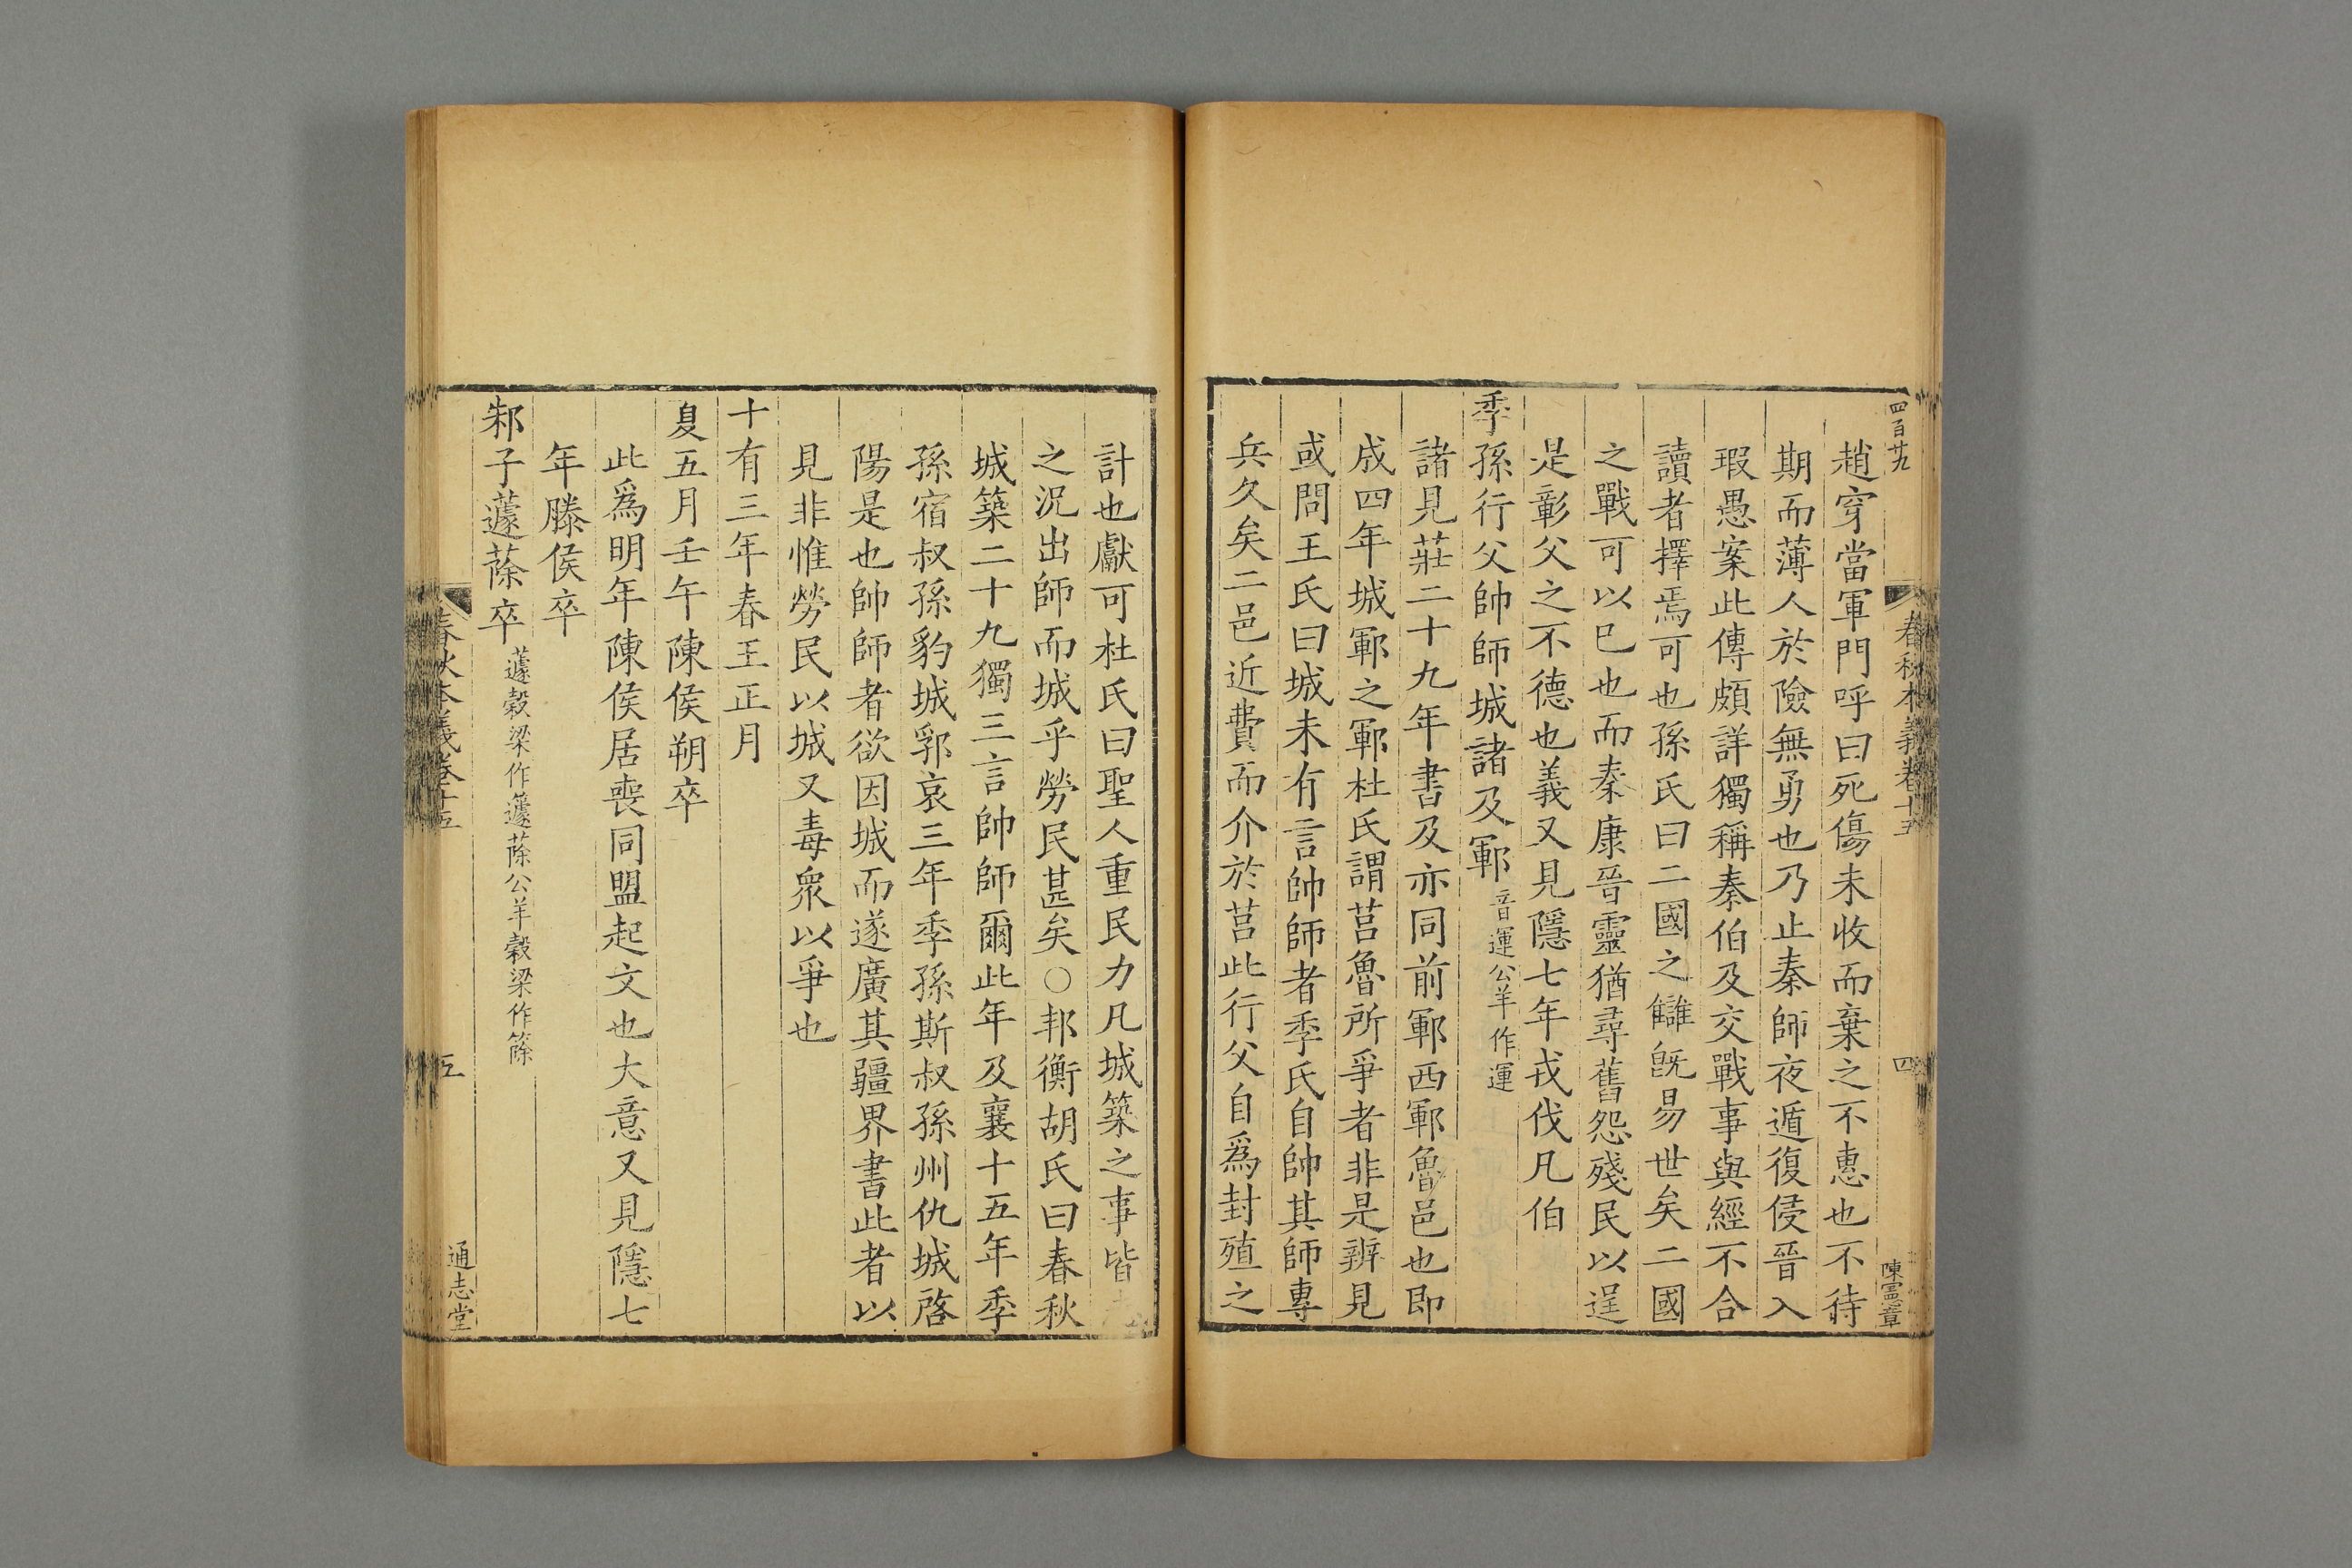 四百廿九
春秋本義卷十五
四
陳寔章
趙穿當軍門呼曰死傷未收而棄之不惠也不待
期而薄人於險無勇也乃止秦師夜遁復侵晉入
瑕愚案此傳頗詳獨稱秦伯及交戰事與經不合
讀者擇焉可也孫氏曰二國之讎旣易世矣二國
之戰可以已也而秦康晉靈猶尋舊怨殘民以逞
是彰父之不德也義又見隱七年戎伐凡伯
季孫行父帥師城諸及鄆音運公羊作運
諸見莊二十九年書及亦同前鄆西鄆魯邑也即
成四年城鄆之鄆杜氏謂莒魯所爭者非是辨見
或問王氏曰城未有言帥師者季氏自帥其師專
兵久矣二邑近費而介於莒此行父自爲封殖之
計也獻可杜氏曰聖人重民力凡城築之事皆
之況出師而城乎勞民甚矣○邦衡胡氏曰春秋
城築二十九獨三言帥師爾此年及襄十五年季
孫宿叔孫豹城郛哀三年季孫斯叔孫州仇城啓
陽是也帥師者欲因城而遂廣其疆界書此者以
見非惟勞民以城又毒衆以爭也
十有三年春王正月
夏五月壬午陳侯朔卒
此爲明年陳侯居喪同盟起文也大意又見隱七
年滕侯卒
邾子蘧蒢卒蘧穀梁作籧蒢公羊穀梁作篨
春秋本義卷十五
五
通志堂